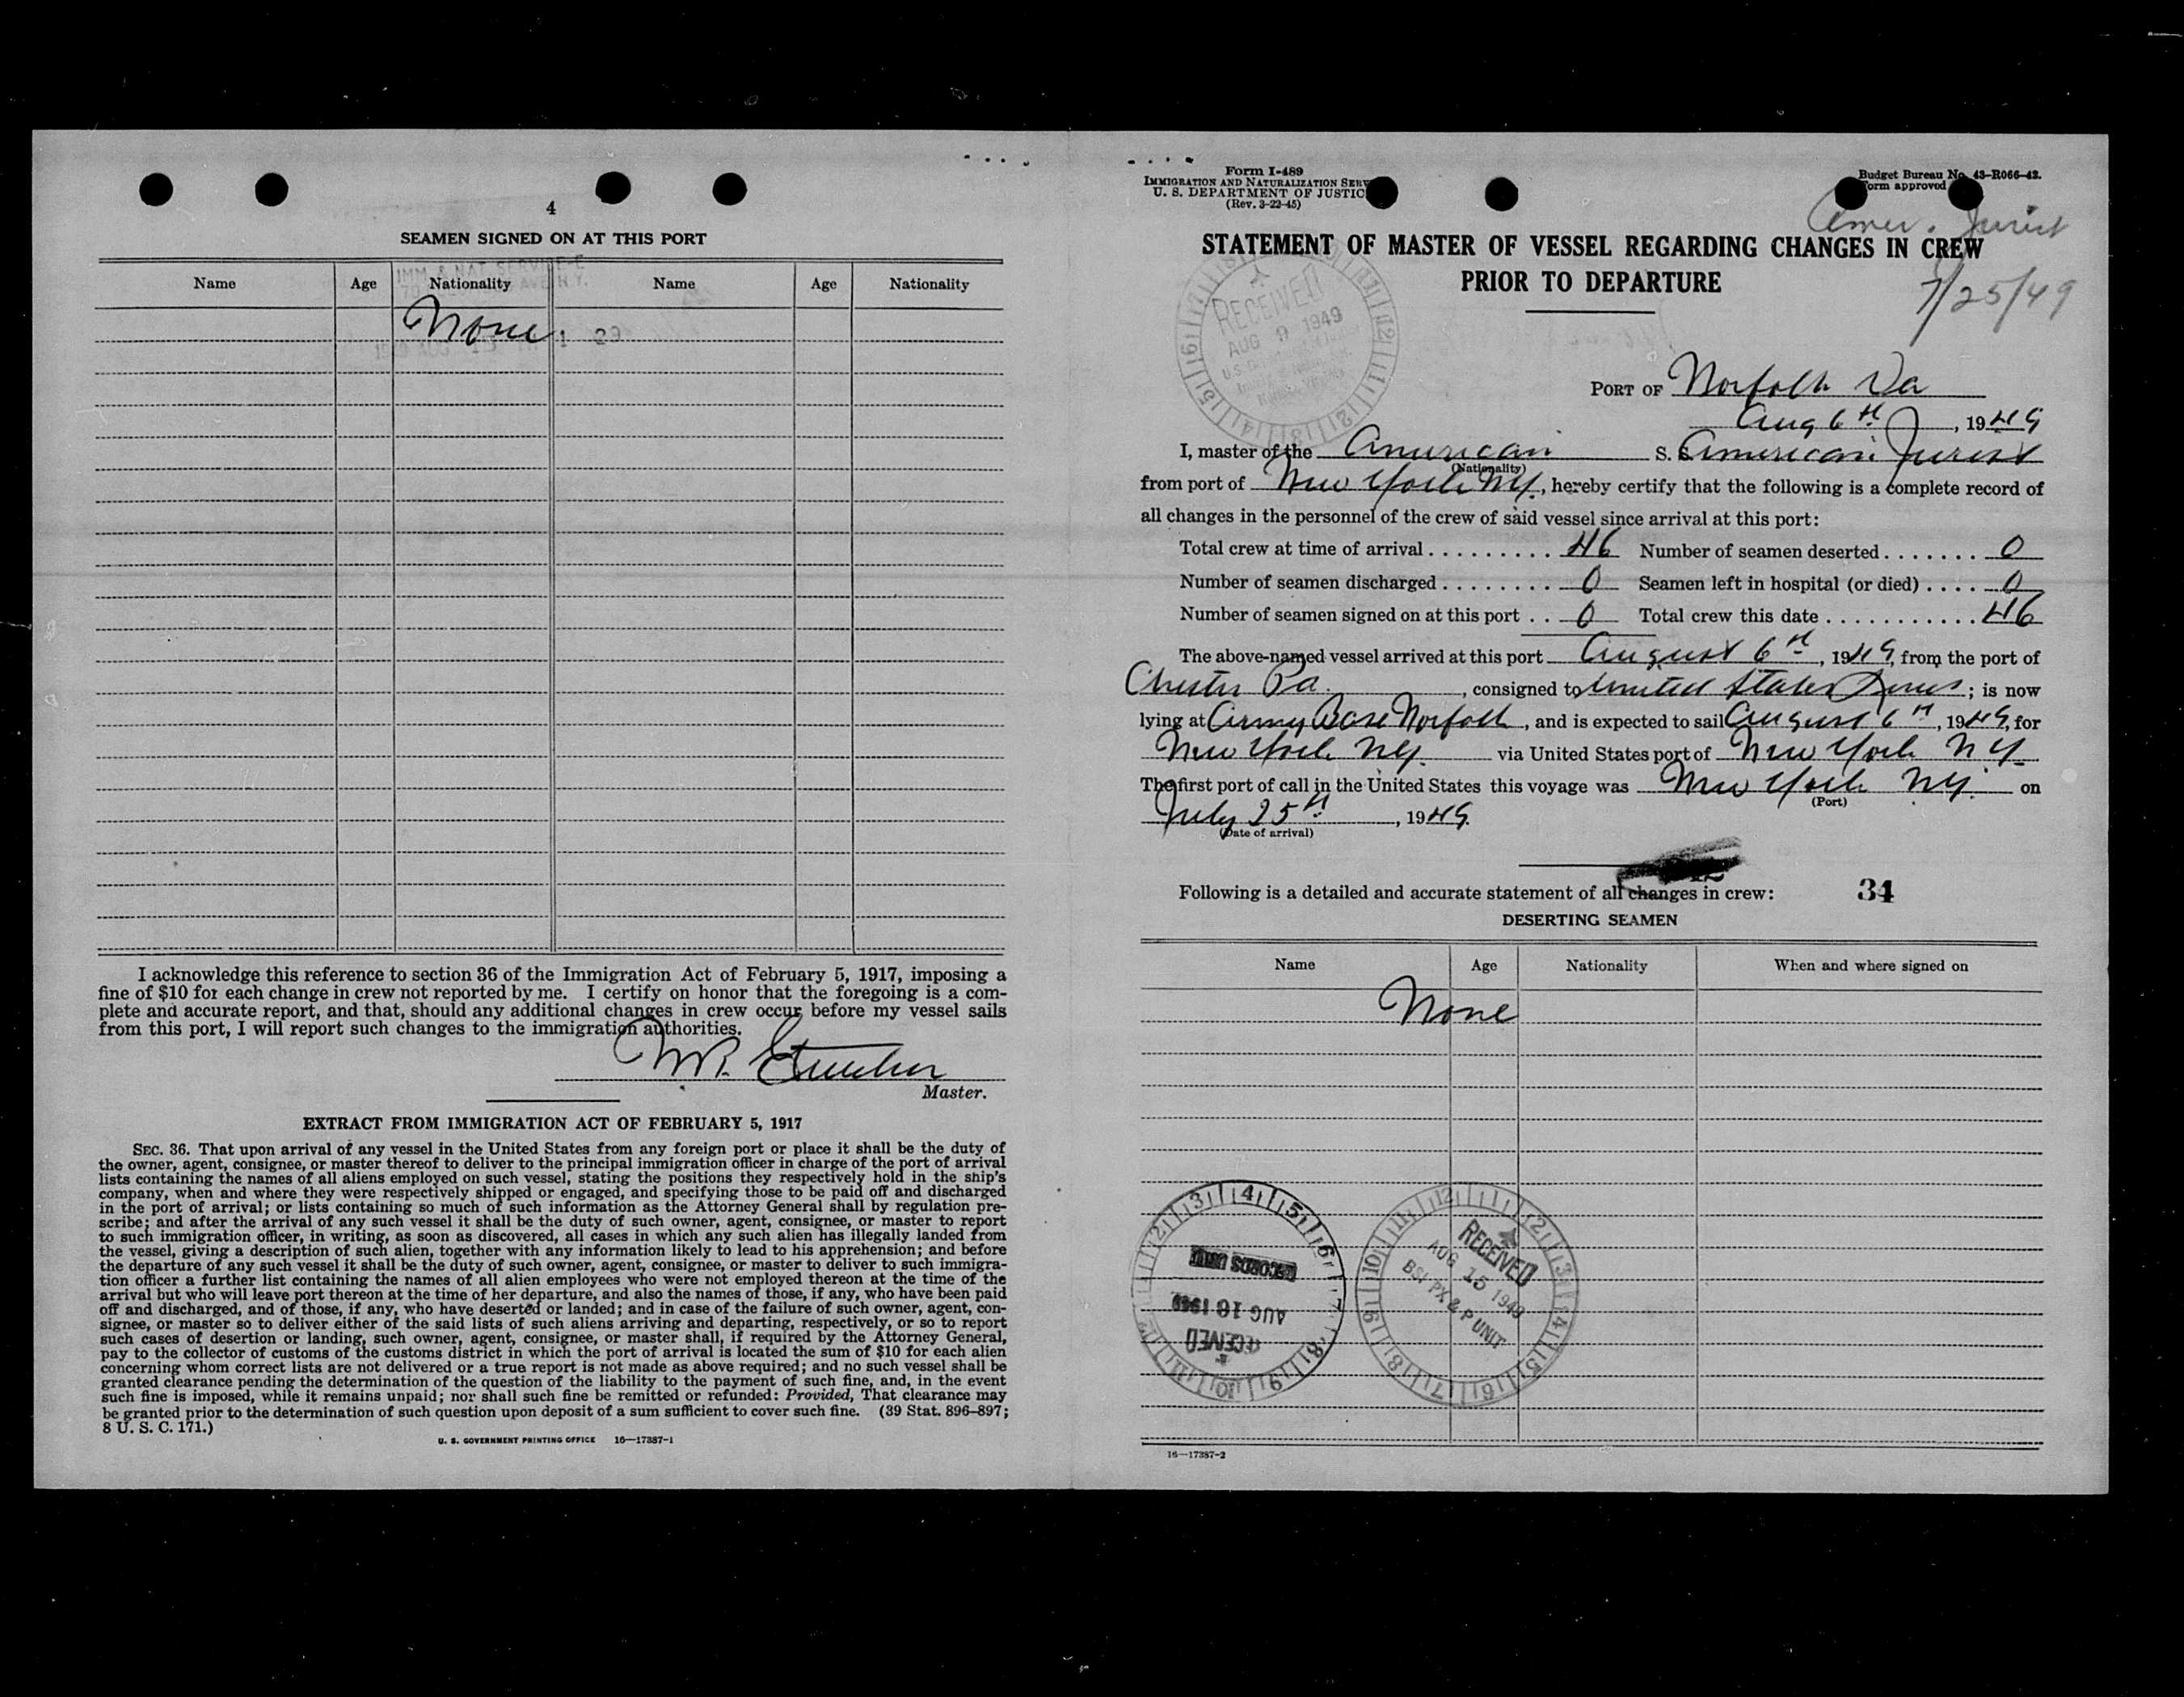 4
SEAMEN SIGNED ON AT THIS PORT
IMM. & NAT. SERVICE
AVE N.Y.
Name Age Nationality Name Age Nationality
None
I acknowledge this reference to section 36 of the Immigration Act of February 5, 1917, imposing a
fine of $10 for each change in crew not reported by me. I certify on honor that the foregoing is a com-
plete and accurate report, and that, should any additional changes in crew occur before my vessel sails
from this port, I will report such changes to the immigration authorities.
Master.
EXTRACT FROM IMMIGRATION ACT OF FEBRUARY 5, 1917
SEC. 36. That upon arrival of any vessel in the United States from any foreign port or place it shall be the duty of
the owner, agent, consignee, or master thereof to deliver to the principal immigration officer in charge of the port of arrival
lists containing the names of all aliens employed on such vessel, stating the positions they respectively hold in the ship's
company, when and where they were respectively shipped or engaged, and specifying those to be paid off and discharged
in the port of arrival; or lists containing so much of such information as the Attorney General shall by regulation pre-
scribe; and after the arrival of any such vessel it shall be the duty of such owner, agent, consignee, or master to report
to such immigration officer, in writing, as soon as discovered, all cases in which any such alien has illegally landed from
the vessel, giving a description of such alien, together with any information likely to lead to his apprehension; and before
the departure of any such vessel it shall be the duty of such owner, agent, consignee, or master to deliver to such immigra-
tion officer a further list containing the names of all alien employees who were not employed thereon at the time of the
arrival but who will leave port thereon at the time of her departure, and also the names of those, if any, who have been paid
off and discharged, and of those, if any, who have deserted or landed; and in case of the failure of such owner, agent, con-
signee, or master so to deliver either of the said lists of such aliens arriving and departing, respectively, or so to report
such cases of desertion or landing, such owner, agent, consignee, or master shall, if required by the Attorney General,
pay to the collector of customs of the customs district in which the port of arrival is located the sum of $10 for each alien
concerning whom correct lists are not delivered or a true report is not made as above required; and no such vessel shall be
granted clearance pending the determination of the question of the liability to the payment of such fine, and, in the event
such fine is imposed, while it remains unpaid; nor shall such fine be remitted or refunded: Provided, That clearance may
be granted prior to the determination of such question upon deposit of a sum sufficient to cover such fine. (39 Stat. 896–897;
8 U. S. C. 171.)
U. S. GOVERNMENT PRINTING OFFICE 16—17387-1
Form I-489
IMMIGRATION AND NATURALIZATION SERV
U. S. DEPARTMENT OF JUSTIC
(Rev. 3-22-45)
Budget Bureau No. 43-R066-42.
Form approved
Amer. Jurist
STATEMENT OF MASTER OF VESSEL REGARDING CHANGES IN CREW
PRIOR TO DEPARTURE
7/25/49
RECEIVED
AUG 9 1949
PORT OF Norfolk Va
Aug 6th, 1949
I, master of the American S. S. American Jurist
(Nationality)
from port of New York NY., hereby certify that the following is a complete record of
all changes in the personnel of the crew of said vessel since arrival at this port:
Total crew at time of arrival . . . . . . . . . 46 Number of seamen deserted . . . . . . . 0
Number of seamen discharged . . . . . . . . 0 Seamen left in hospital (or died) . . . . 0
Number of seamen signed on at this port . . 0 Total crew this date . . . . . . . . . . . . 46
The above-named vessel arrived at this port August 6th, 1949, from the port of
Chester Pa., consigned to United States Lines; is now
lying at Army Base Norfolk, and is expected to sail August 6th, 1949, for
New York NY. via United States port of New York NY
The first port of call in the United States this voyage was New York NY. on
(Port)
July 25th, 1949.
(Date of arrival)
Following is a detailed and accurate statement of all changes in crew: 34
DESERTING SEAMEN
Name Age Nationality When and where signed on
None
RECORDS UNIT
AUG 16 1949
RECEIVED
RECEIVED
AUG 15 1949
BSI PX & P UNIT
16—17387-2